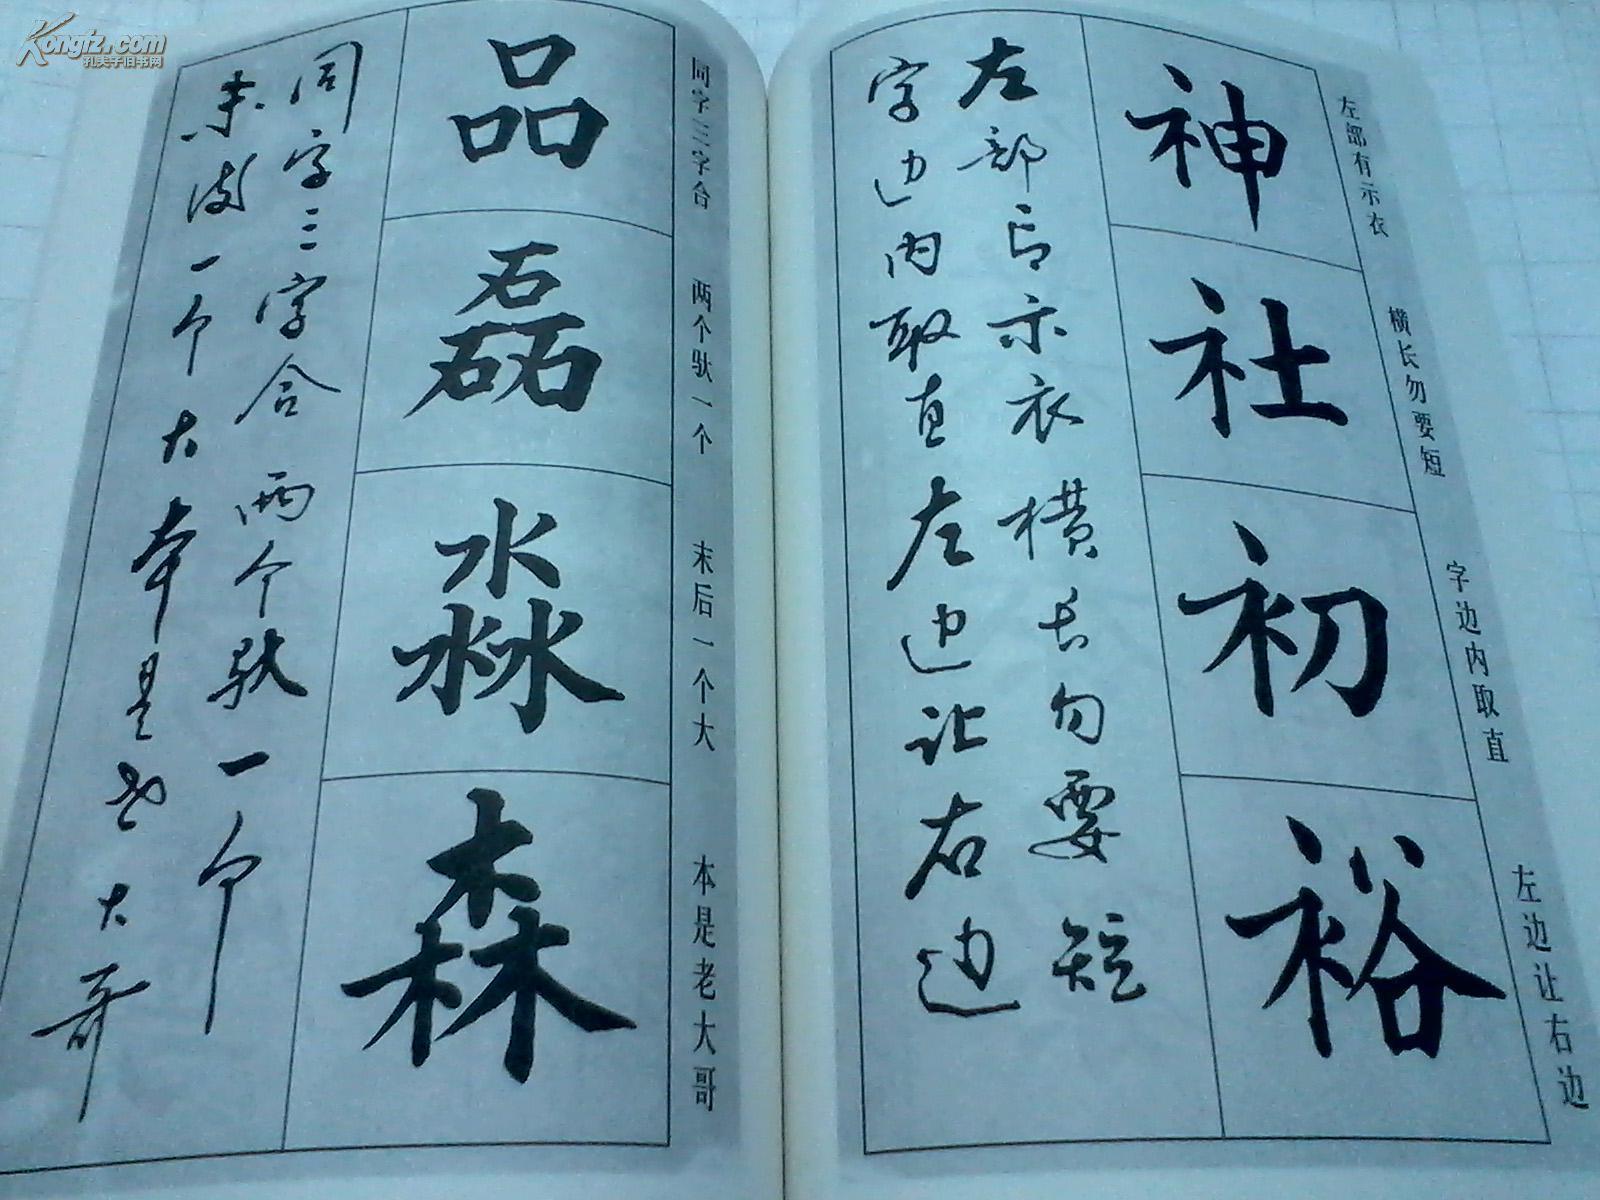 Kongfz.com
孔夫子旧书网
左部有示衣
横长勿要短
字边内取直
左边让右边
神
社
初
裕
左部有示衣横长勿要短
字边内取直左边让右边
同字三字合
两个驮一个
末后一个大
本是老大哥
品
磊
淼
森
同字三字合两个驮一个
末后一个大本是老大哥